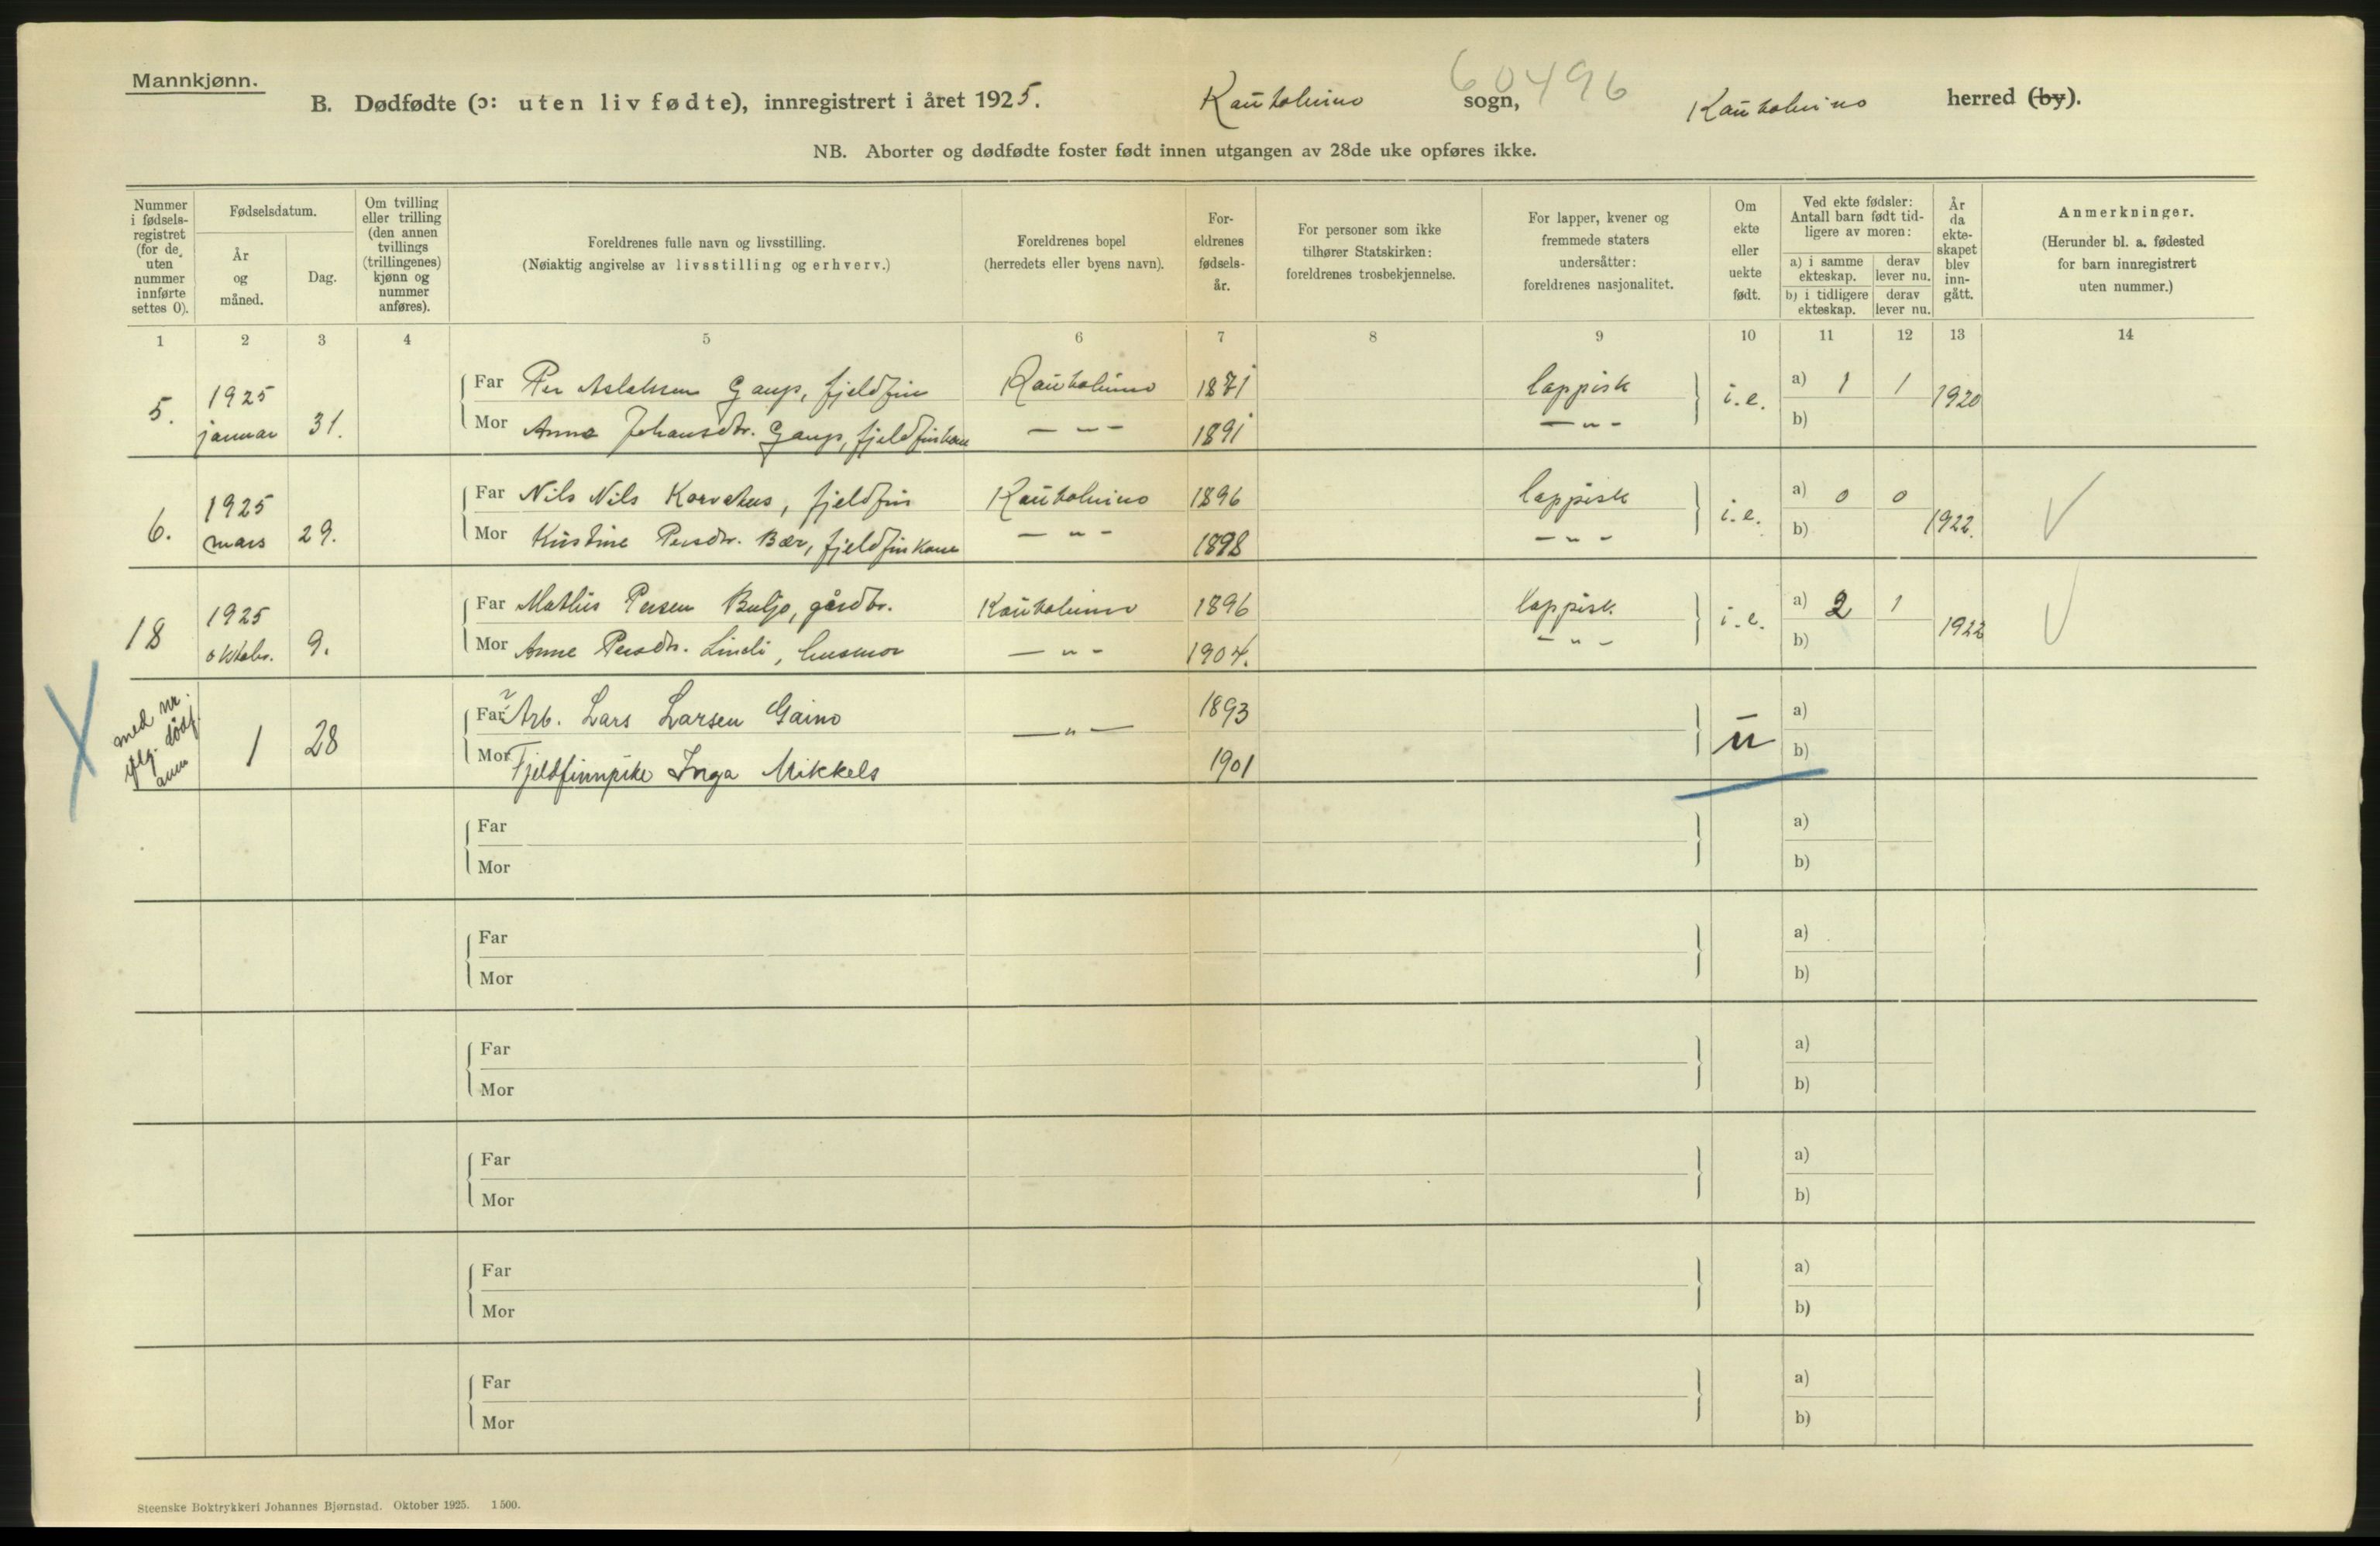 Mannkjønn.
60496
B. Dødfødte (ɔ: uten liv fødte), innregistrert i året 1925. Kautokeino sogn, Kautokeino herred (by).
NB. Aborter og dødfødte foster født innen utgangen av 28de uke opføres ikke.
Nummer i fødsels-registret (for de uten nummer innførte settes 0).
Fødselsdatum.
År og måned.
Dag.
Om tvilling eller trilling (den annen tvillings (trillingenes) kjønn og nummer anføres).
Foreldrenes fulle navn og livsstilling.
(Nøiaktig angivelse av livsstilling og erhverv.)
Foreldrenes bopel
(herredets eller byens navn).
For-eldrenes fødsels-år.
For personer som ikke tilhører Statskirken: foreldrenes trosbekjennelse.
For lapper, kvener og fremmede staters undersåtter: foreldrenes nasjonalitet.
Om ekte eller uekte født.
Ved ekte fødsler: Antall barn født tid-ligere av moren:
a) i samme ekteskap. derav lever nu.
b) i tidligere ekteskap. derav lever nu.
År da ekte-skapet blev inn-gått.
Anmerkninger.
(Herunder bl. a. fødested for barn innregistrert uten nummer.)
1 2 3 4 5 6 7 8 9 10 11 12 13 14
5. 1925 januar 31.
Far Per Aslaksen Gaup, fjeldfin Kautokeino 1871 lappisk i.e. a) 1 1 1920
Mor Anna Johansdtr. Gaup, fjeldfinkone — " — 1891 — " — b)
6. 1925 mars 29.
Far Nils Nils Korvatus, fjeldfin Kautokeino 1896 lappisk i.e. a) 0 0 1922.
Mor Kristine Persdtr. Bær, fjeldfinkone — " — 1898 — " — b)
18 1925 oktobr. 9.
Far Mathis Persen Buljo, gårdbr. Kautokeino 1896 lappisk. i.e. a) 2 1 1922
Mor Anne Persdtr. Lindi, husmor — " — 1904. — " — b)
med nr.
dödf.
1 28
Far Arb. Lars Larsen Gaino — " — 1893 u a)
Mor Fjeldfinnpike Inga Mikkels 1901 b)
Far a)
Mor b)
Far a)
Mor b)
Far a)
Mor b)
Far a)
Mor b)
Far a)
Mor b)
Far a)
Mor b)
Steenske Boktrykkeri Johannes Bjørnstad. Oktober 1925. 1500.